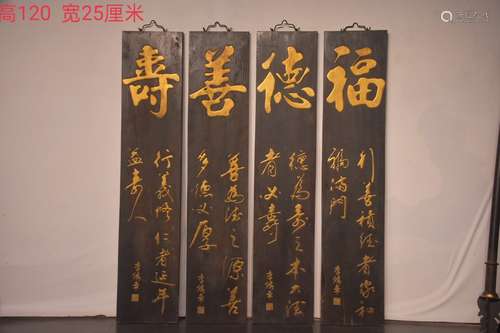 高120 宽25厘米
福
行善積德者家和
福滿門
德
德為壽之本大德
者必壽
善
善為德之源善
多德必厚
壽
行義修仁者延年
益壽人